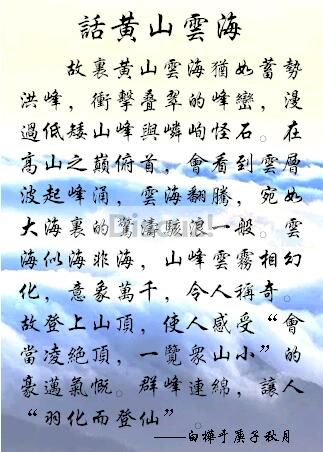 話黃山雲海
故裏黃山雲海猶如蓄勢
洪峰，衝擊叠翠的峰巒，漫
過低矮山峰與嶙峋怪石。在
高山之巔俯首，會看到雲層
波起峰涌，雲海翻騰，宛如
大海裏的驚濤駭浪一般。雲
海似海非海，山峰雲霧相幻
化，意象萬千，令人稱奇。
故登上山頂，使人感受“會
當凌絕頂，一覽衆山小”的
豪邁氣慨。群峰連綿，讓人
“羽化而登仙”。
——白樺于庚子秋月